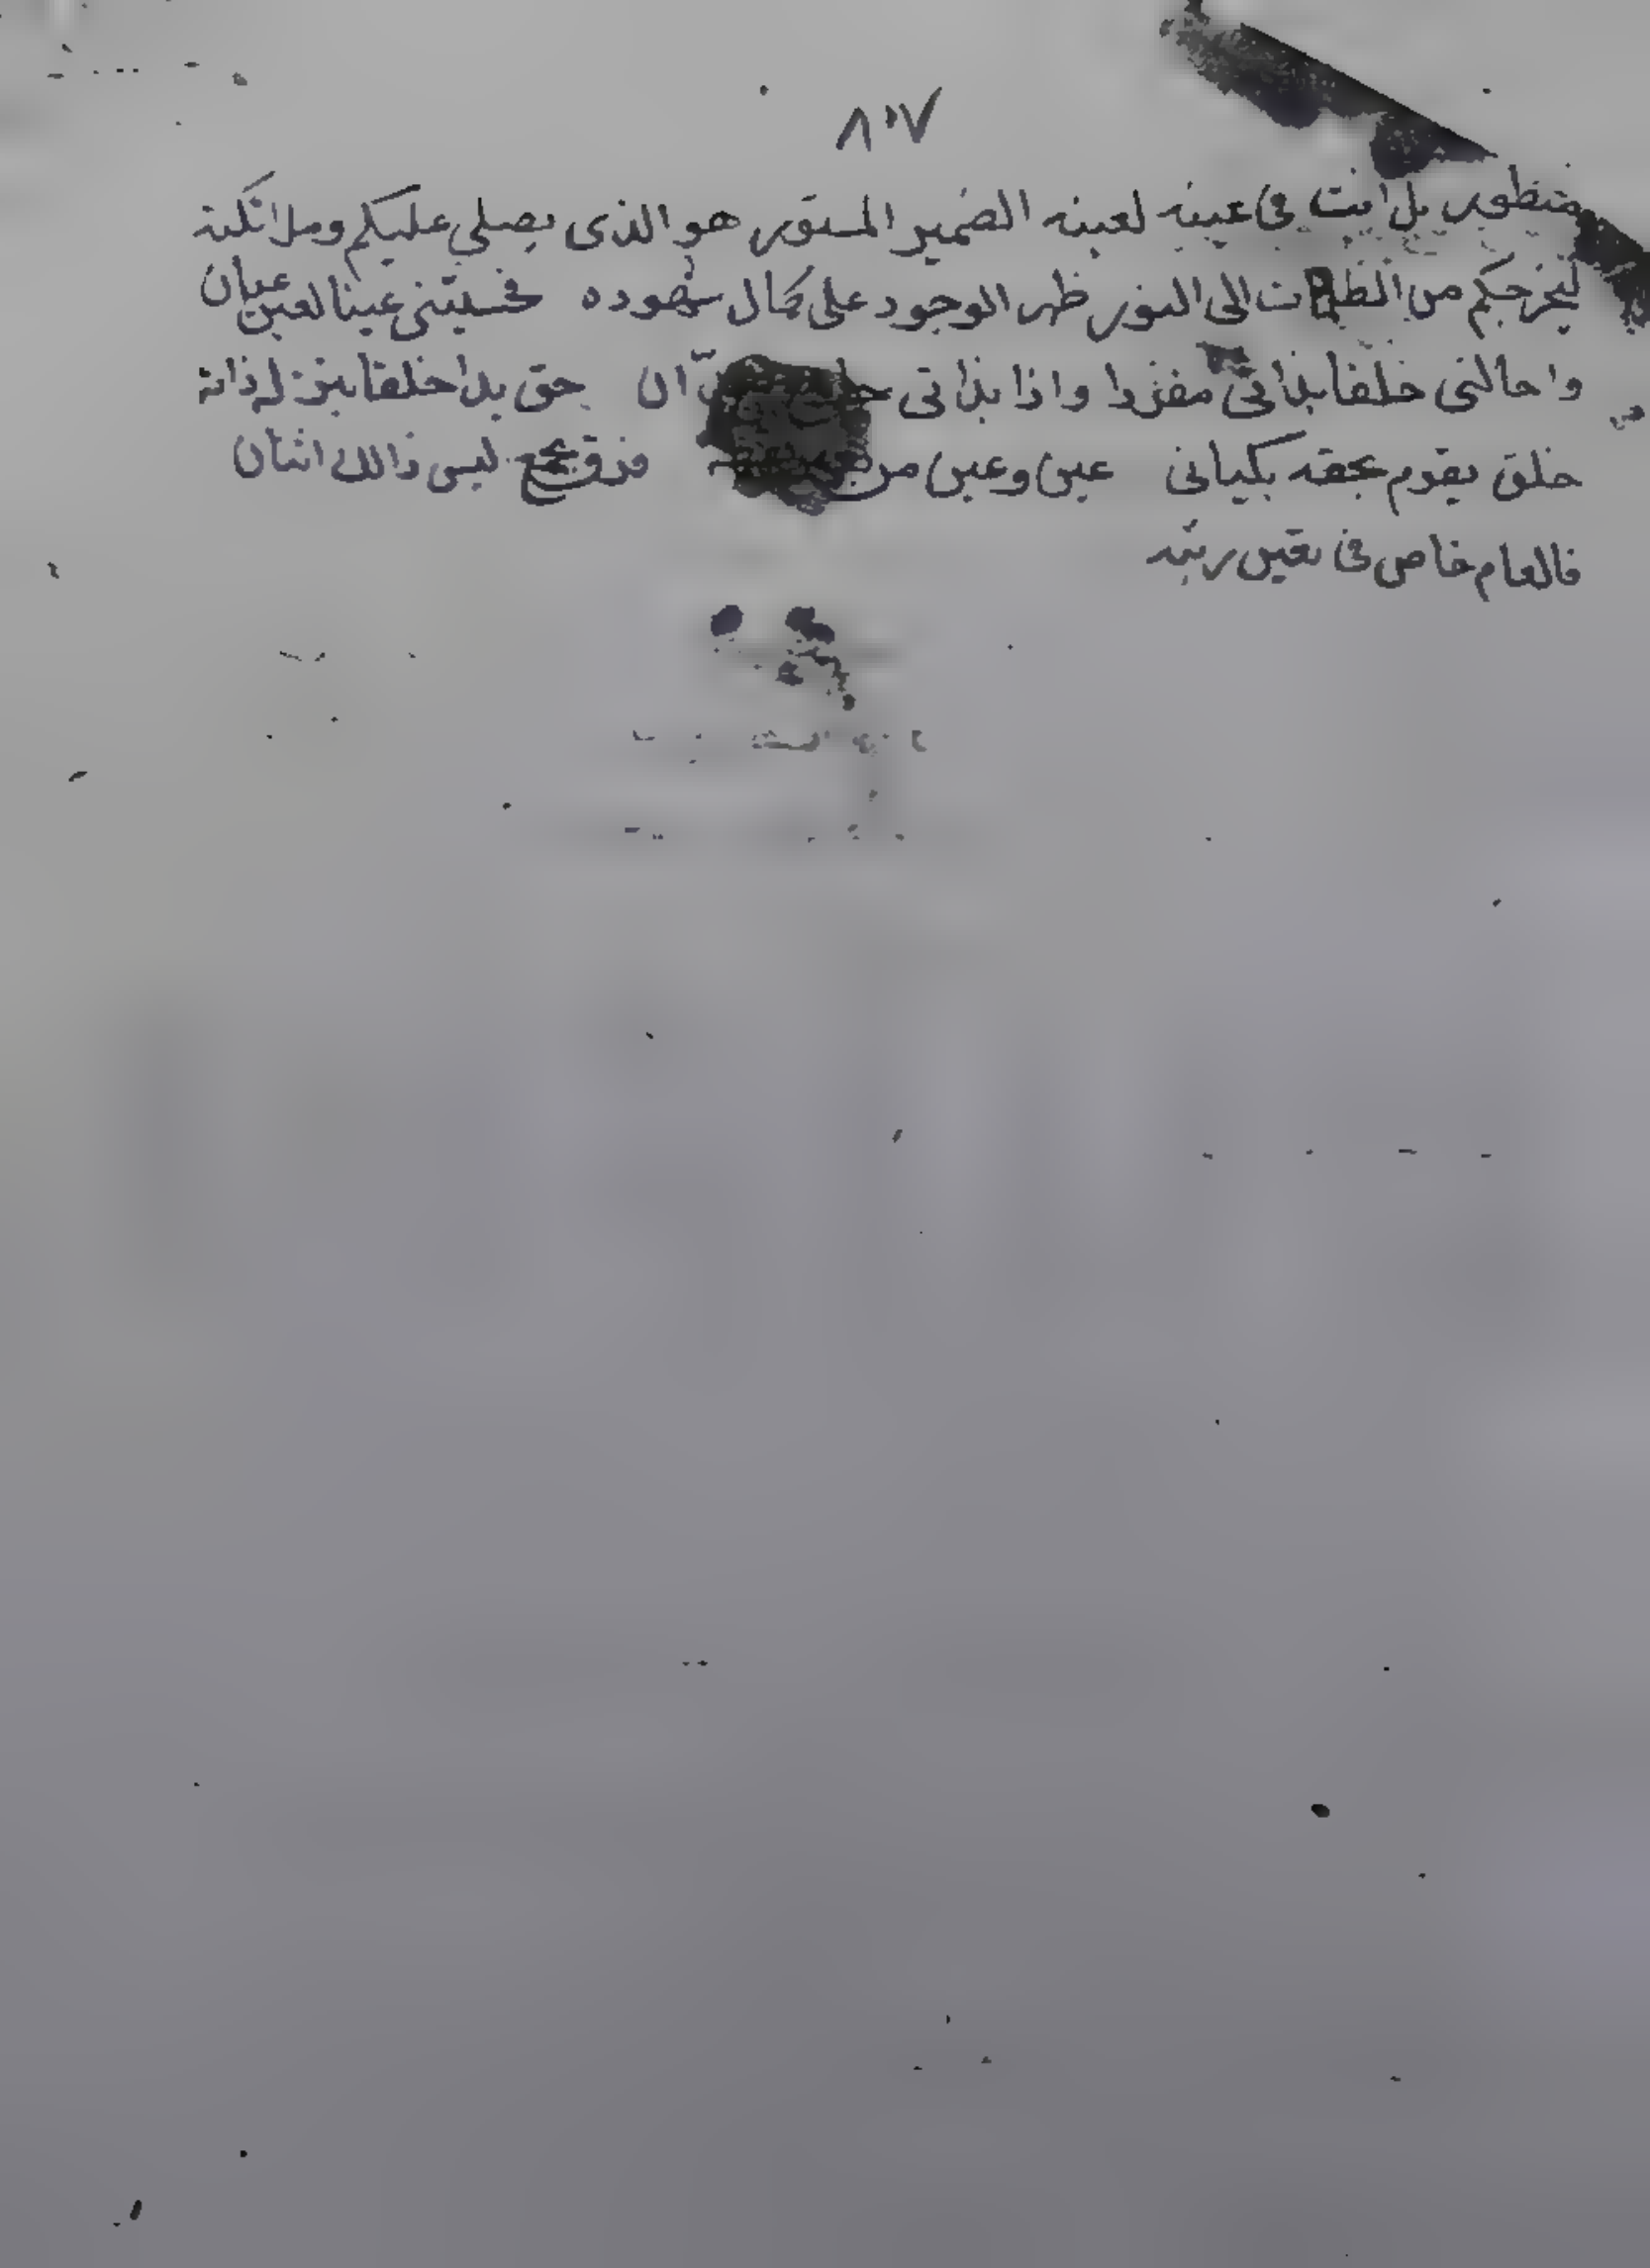 ٨٠٧
منظور بل انت فى عينه لعينه الضمير المستور هو الذى يصلي عليكم وملائكته
ليخرجكم من الظلمات الى النور ظهر الوجود على كمال شهوده فحسبتنى عينا لعين عيان
واحالنى خلقا بذاتى مفردا واذا بذاتى ان حق بدا خلقا بنزل ذاته
خلق يقوم بحقه بكيانى عين وعين فرق بجمع ليس ذالك اثنان
فالعام خاص فى تعين رتبه